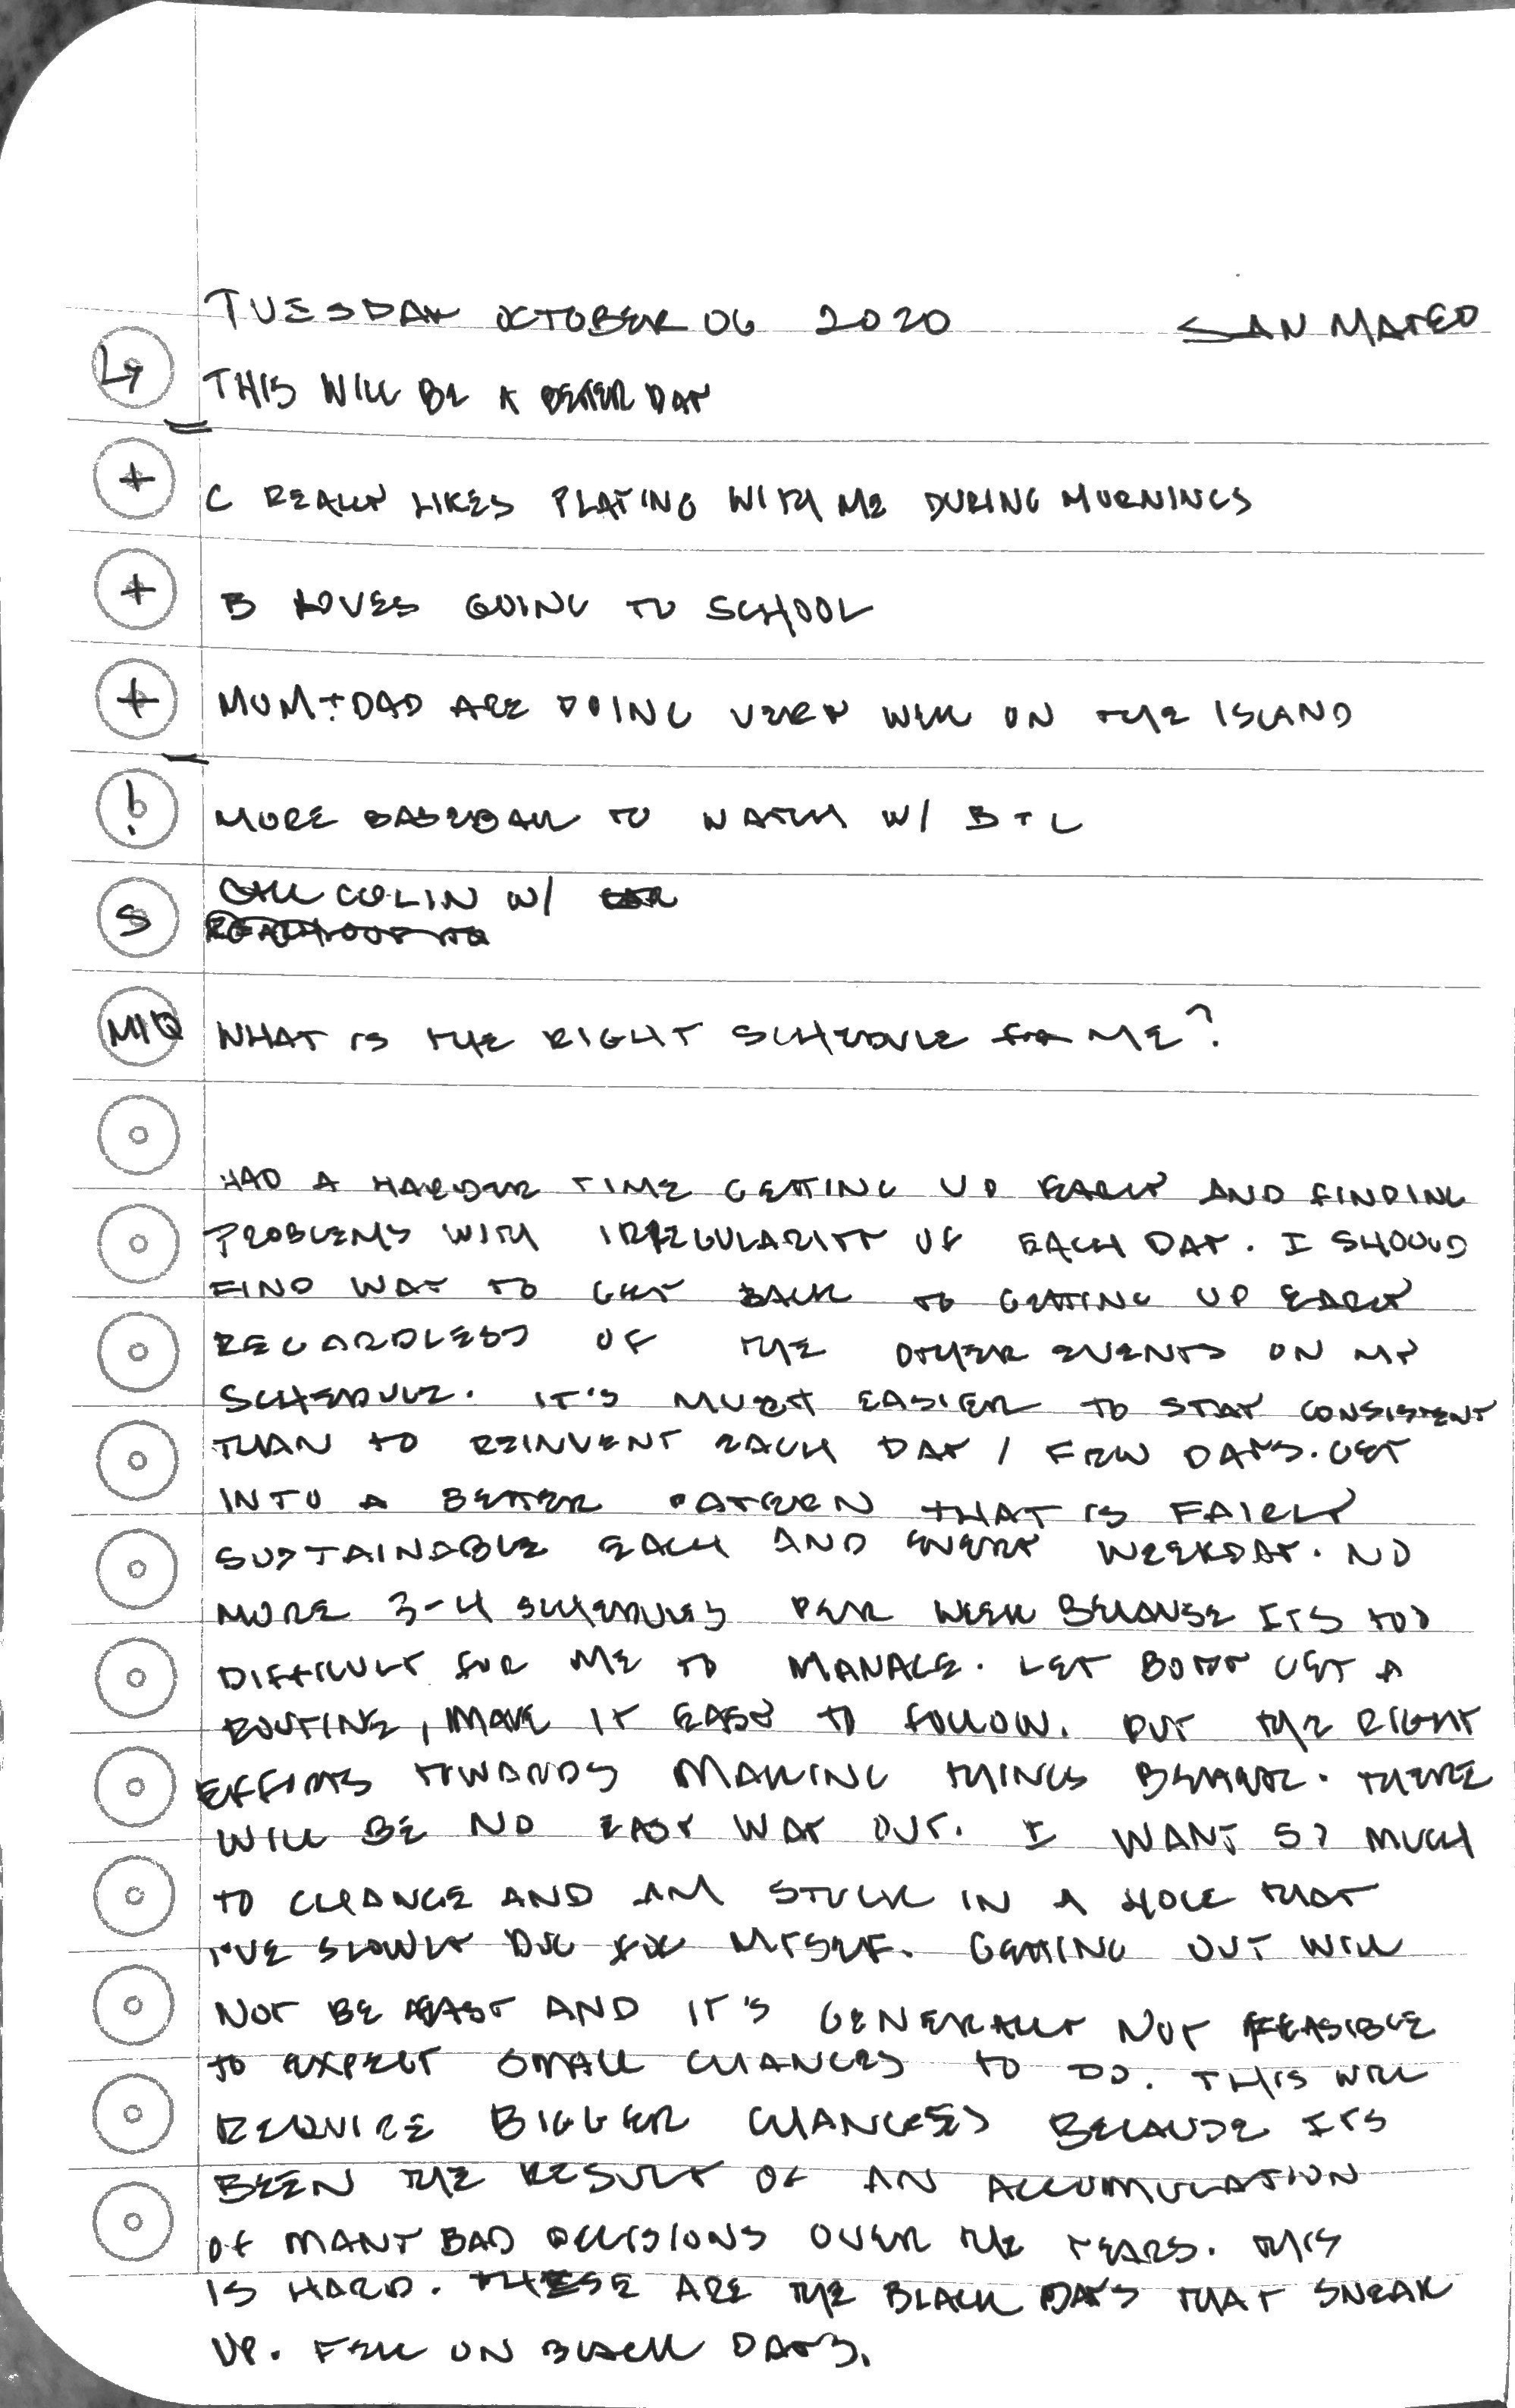 TUESDAY OCTOBER 06 2020 SAN MATEO
L9 THIS WILL BE A BETTER DAY
+ C REALLY LIKES PLAYING WITH ME DURING MORNINGS
+ B LOVES GOING TO SCHOOL
+ MOM + DAD ARE DOING VERY WELL ON THE ISLAND
! MORE BASEBALL TO WATCH W/ B + C
CALL COLIN W/
S
MIQ WHAT IS THE RIGHT SCHEDULE FOR ME?
HAD A HARDER TIME GETTING UP EARLY AND FINDING
PROBLEMS WITH IRREGULARITY OF EACH DAY. I SHOULD
FIND WAY TO GET BACK TO GETTING UP EARLY
REGARDLESS OF THE OTHER EVENTS ON MY
SCHEDULE. IT'S MUCH EASIER TO STAY CONSISTENT
THAN TO REINVENT EACH DAY / FEW DAYS. GET
INTO A BETTER PATTERN THAT IS FAIRLY
SUSTAINABLE EACH AND EVERY WEEKDAY. NO
MORE 3-4 SCHEDULES PER WEEK BECAUSE ITS TOO
DIFFICULT FOR ME TO MANAGE. LET BODY GET A
ROUTINE, MAKE IT EASY TO FOLLOW. PUT THE RIGHT
EFFORTS TOWARDS MAKING THINGS BETTER. THERE
WILL BE NO EASY WAY OUT. I WANT SO MUCH
TO CHANGE AND AM STUCK IN A HOLE THAT
I'VE SLOWLY DUG FOR MYSELF. GETTING OUT WILL
NOT BE EASY AND IT'S GENERALLY NOT FEASIBLE
TO EXPECT SMALL CHANGES TO DO. THIS WILL
REQUIRE BIGGER CHANGES BECAUSE ITS
BEEN THE RESULT OF AN ACCUMULATION
OF MANY BAD DECISIONS OVER THE YEARS. THIS
IS HARD. THESE ARE THE BLACK DAYS THAT SNEAK
UP. FELL ON BLACK DAYS.